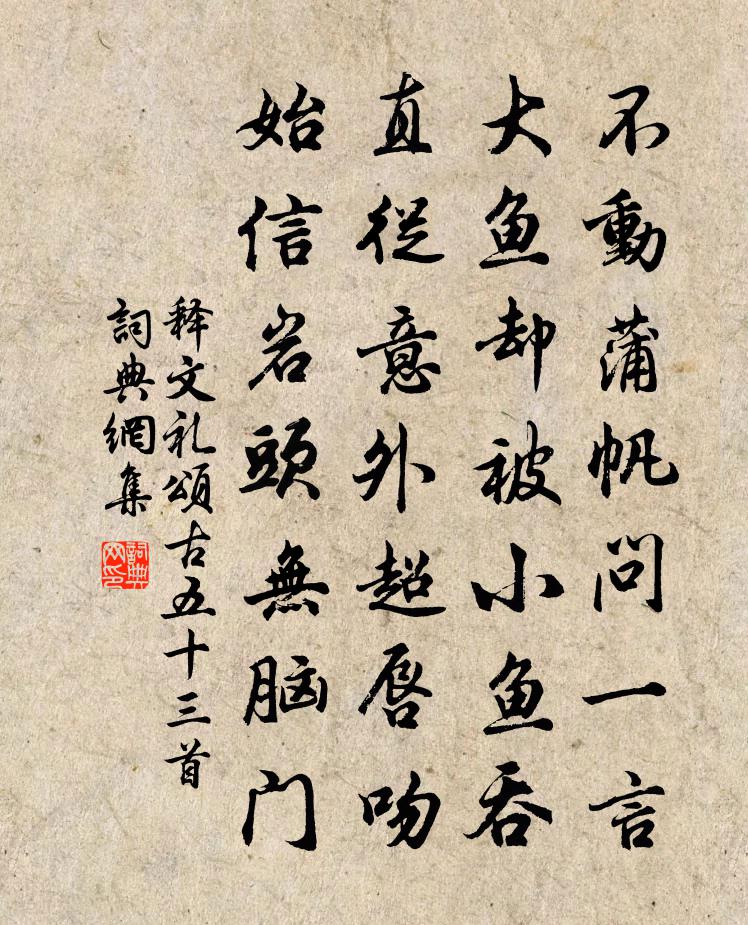 不動蒲帆問一言
大鱼却被小鱼吞
直從意外超唇吻
始信岩頭無脑门
释文礼頌古五十三首
詞典網集
詞典
网印